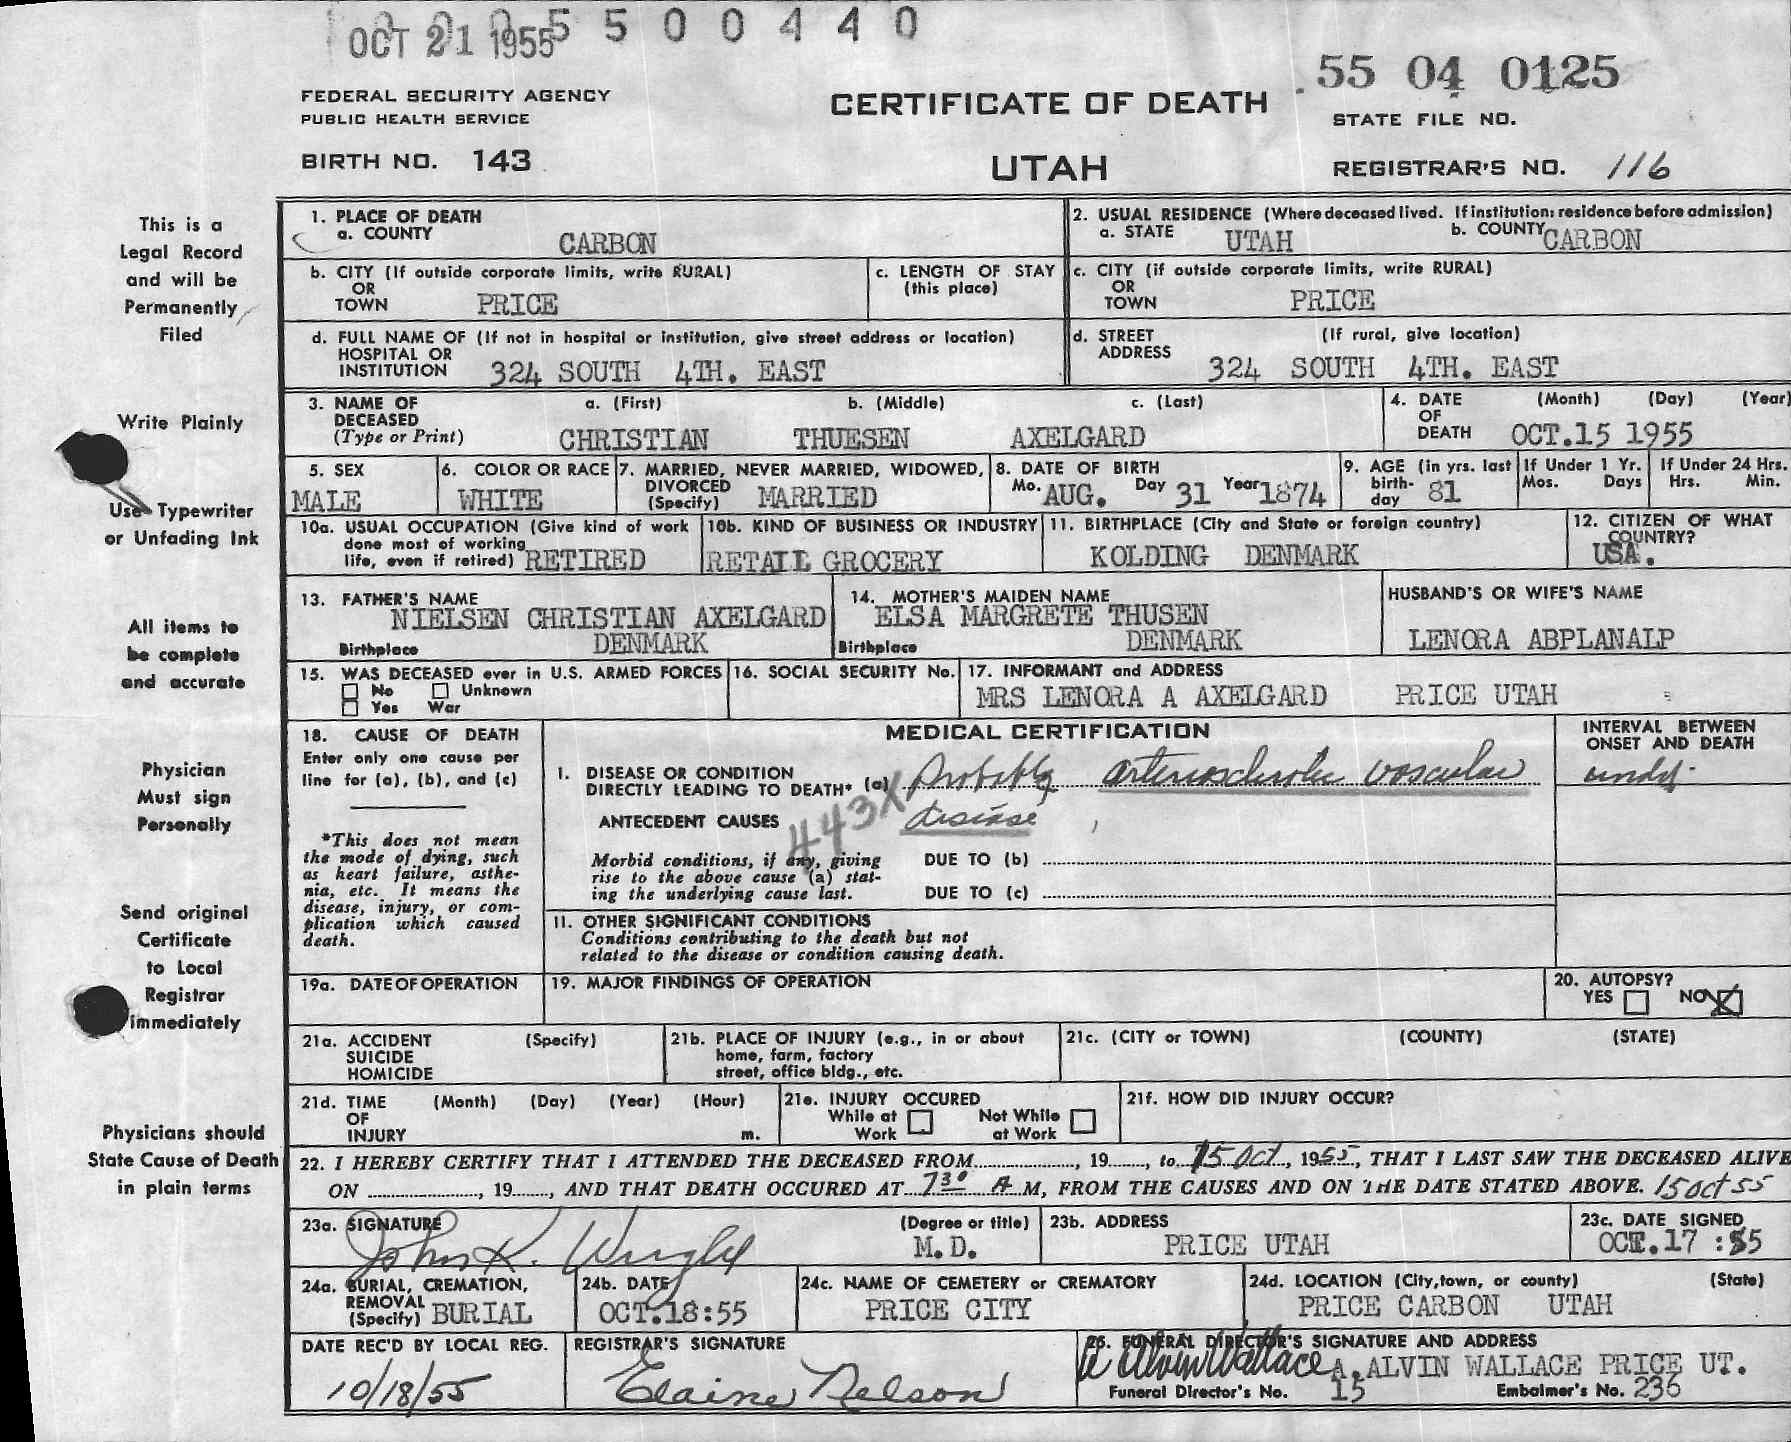 OCT 21 1955 5 5 0 0 4 4 0
55 04 0125
FEDERAL SECURITY AGENCY
PUBLIC HEALTH SERVICE
CERTIFICATE OF DEATH
STATE FILE NO.
BIRTH NO. 143
UTAH
REGISTRAR'S NO. 116
This is a
Legal Record
and will be
Permanently
Filed
Write Plainly
Use Typewriter
or Unfading Ink
All items to
be complete
and accurate
Physician
Must sign
Personally
Send original
Certificate
to Local
Registrar
immediately
Physicians should
State Cause of Death
in plain terms
1. PLACE OF DEATH
a. COUNTY CARBON
2. USUAL RESIDENCE (Where deceased lived. If institution: residence before admission)
a. STATE UTAH b. COUNTY CARBON
b. CITY (If outside corporate limits, write RURAL)
OR
TOWN PRICE
c. LENGTH OF STAY
(this place)
c. CITY (if outside corporate limits, write RURAL)
OR
TOWN PRICE
d. FULL NAME OF (If not in hospital or institution, give street address or location)
HOSPITAL OR
INSTITUTION 324 SOUTH 4TH. EAST
d. STREET (If rural, give location)
ADDRESS 324 SOUTH 4TH. EAST
3. NAME OF a. (First) b. (Middle) c. (Last)
DECEASED
(Type or Print) CHRISTIAN THUESEN AXELGARD
4. DATE (Month) (Day) (Year)
OF
DEATH OCT.15 1955
5. SEX
MALE
6. COLOR OR RACE
WHITE
7. MARRIED, NEVER MARRIED, WIDOWED,
DIVORCED
(Specify) MARRIED
8. DATE OF BIRTH
Mo. AUG. Day 31 Year 1874
9. AGE (in yrs. last
birth-
day 81
If Under 1 Yr.
Mos. Days
If Under 24 Hrs.
Hrs. Min.
10a. USUAL OCCUPATION (Give kind of work
done most of working
life, even if retired) RETIRED
10b. KIND OF BUSINESS OR INDUSTRY
RETAIL GROCERY
11. BIRTHPLACE (City and State or foreign country)
KOLDING DENMARK
12. CITIZEN OF WHAT
COUNTRY?
USA.
13. FATHER'S NAME
NIELSEN CHRISTIAN AXELGARD
Birthplace DENMARK
14. MOTHER'S MAIDEN NAME
ELSA MARGRETE THUSEN
Birthplace DENMARK
HUSBAND'S OR WIFE'S NAME
LENORA ABPLANALP
15. WAS DECEASED ever in U.S. ARMED FORCES
No Unknown
Yes War
16. SOCIAL SECURITY No.
17. INFORMANT and ADDRESS
MRS LENORA A AXELGARD PRICE UTAH
18. CAUSE OF DEATH
Enter only one cause per
line for (a), (b), and (c)
*This does not mean
the mode of dying, such
as heart failure, asthe-
nia, etc. It means the
disease, injury, or com-
plication which caused
death.
MEDICAL CERTIFICATION
INTERVAL BETWEEN
ONSET AND DEATH
I. DISEASE OR CONDITION
DIRECTLY LEADING TO DEATH* (a) Probably arteriosclerotic vascular
ANTECEDENT CAUSES disease
443X
Morbid conditions, if any, giving
rise to the above cause (a) stat-
ing the underlying cause last.
DUE TO (b)
DUE TO (c)
11. OTHER SIGNIFICANT CONDITIONS
Conditions contributing to the death but not
related to the disease or condition causing death.
19a. DATE OF OPERATION
19. MAJOR FINDINGS OF OPERATION
20. AUTOPSY?
YES NO X
21a. ACCIDENT (Specify)
SUICIDE
HOMICIDE
21b. PLACE OF INJURY (e.g., in or about
home, farm, factory
street, office bldg., etc.
21c. (CITY or TOWN) (COUNTY) (STATE)
21d. TIME (Month) (Day) (Year) (Hour)
OF
INJURY m.
21e. INJURY OCCURED
While at Work Not While at Work
21f. HOW DID INJURY OCCUR?
22. I HEREBY CERTIFY THAT I ATTENDED THE DECEASED FROM.........., 19......, to 15 Oct, 1955, THAT I LAST SAW THE DECEASED ALIVE
ON .........., 19......, AND THAT DEATH OCCURED AT 7 30 A M, FROM THE CAUSES AND ON THE DATE STATED ABOVE. 15 Oct 55
23a. SIGNATURE (Degree or title)
John K. Wright M.D.
23b. ADDRESS
PRICE UTAH
23c. DATE SIGNED
OCT.17 :55
24a. BURIAL, CREMATION,
REMOVAL
(Specify) BURIAL
24b. DATE
OCT.18:55
24c. NAME OF CEMETERY or CREMATORY
PRICE CITY
24d. LOCATION (City, town, or county) (State)
PRICE CARBON UTAH
DATE REC'D BY LOCAL REG.
10/18/55
REGISTRAR'S SIGNATURE
Elaine Nelson
25. FUNERAL DIRECTOR'S SIGNATURE AND ADDRESS
A Alvin Wallace A. ALVIN WALLACE PRICE UT.
Funeral Director's No. 15 Embalmer's No. 236